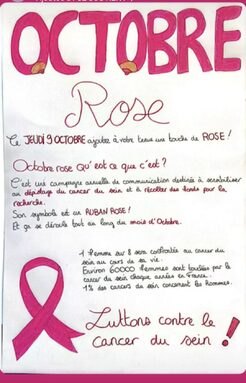 OCTOBRE
Rose
Ce JEUDI 9 OCTOBRE ajoutez à votre tenue une touche de ROSE !
Octobre rose Qu'est ce que c'est ?
C'est une campagne annuelle de communication destinée à sensibiliser
au dépistage du cancer du sein et à récolter des fonds pour la
recherche.
Son symbole est un RUBAN ROSE !
Et ça se déroule tout au long du mois d'Octobre.
1 femme sur 8 sera confrontée au cancer du
sein au cours de sa vie.
Environ 60000 femmes sont touchées par le
cancer du sein chaque année en France.
1% des cancers du sein concernent les Hommes.
Luttons contre le
cancer du sein !